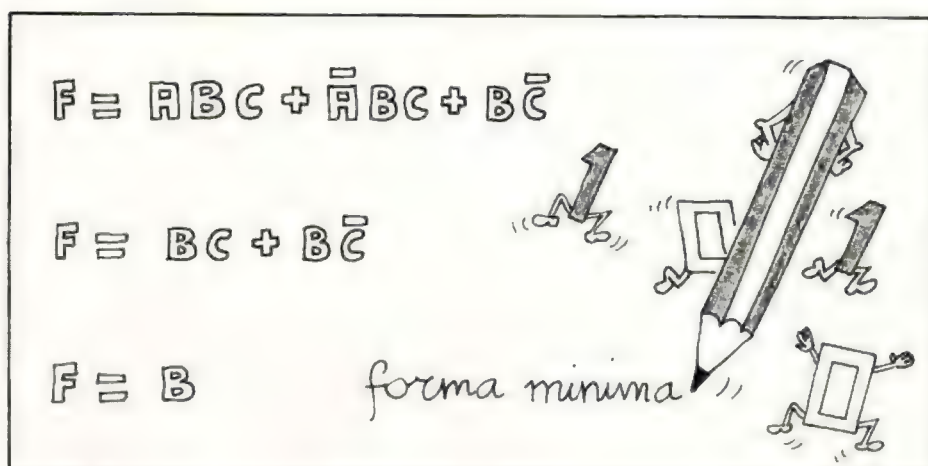 F = ABC + A̅BC + BC̅
F = BC + BC̅
F = B forma minima
1
0
1
0